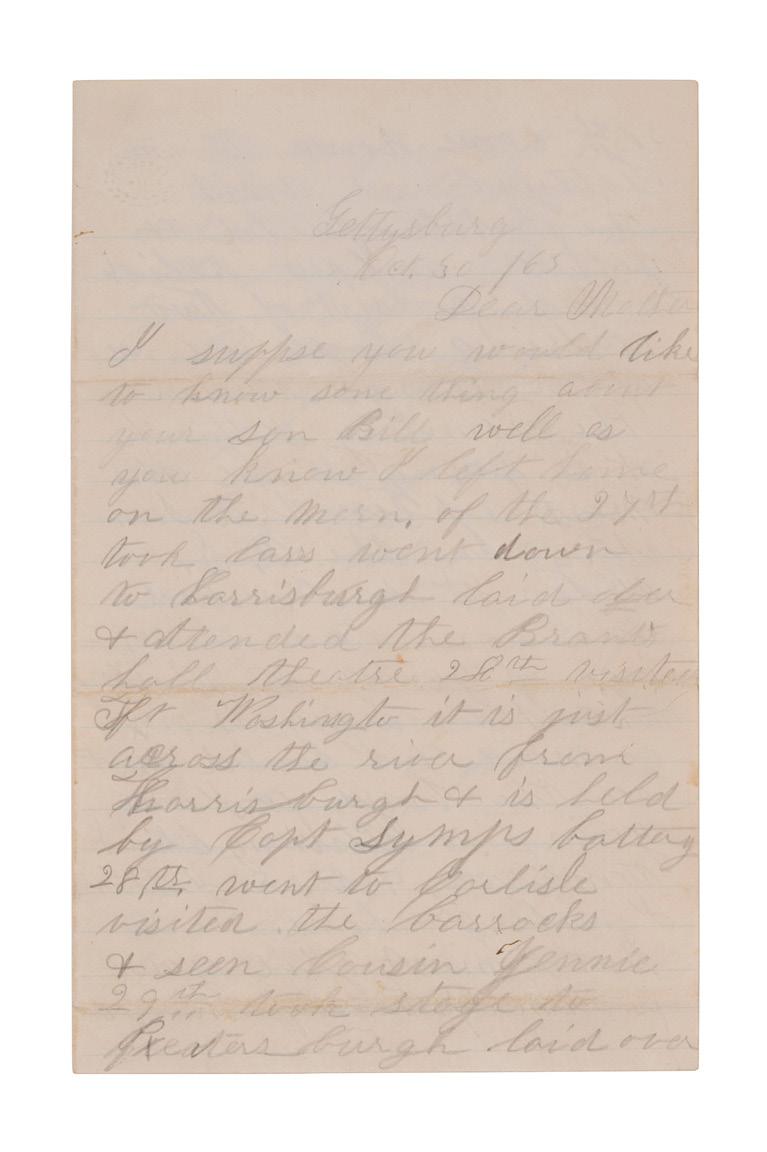 Gettysburg
Oct. 30 /63
Dear Mother
I suppse you would like
to know some thing about
your son Bill well as
you know I left home
on the morn. of the 27st
took cars went down
to Harrisburgh laid over
& attended the Brants
hall theatre 28th visited
Ft Washingto it is just
across the river from
Harrisburgh & is held
by Capt Symps battery
28th. went to Carlisle
visited the barrocks
& seen Cousin Jennie
29th took stage to
burgh laid over